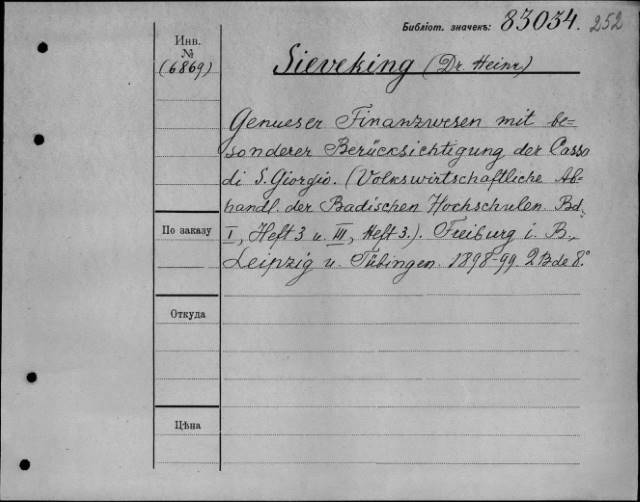 Библіот. значекъ: 83034. 252
Инв.
№
(6869)
Sieveking (Dr. Heinr)
Genueser Finanzwesen mit be=
sonderer Berücksichtigung der Casa
di S. Giorgio. (Volkswirtschaftliche Ab=
handl. der Badischen Hochschulen. Bd.
По заказу
I, Heft 3 u. III, Heft 3.). Freiburg i. B.,
Leipzig u. Tübingen. 1898-99. 2 Bde 8.°
Откуда
Цѣна